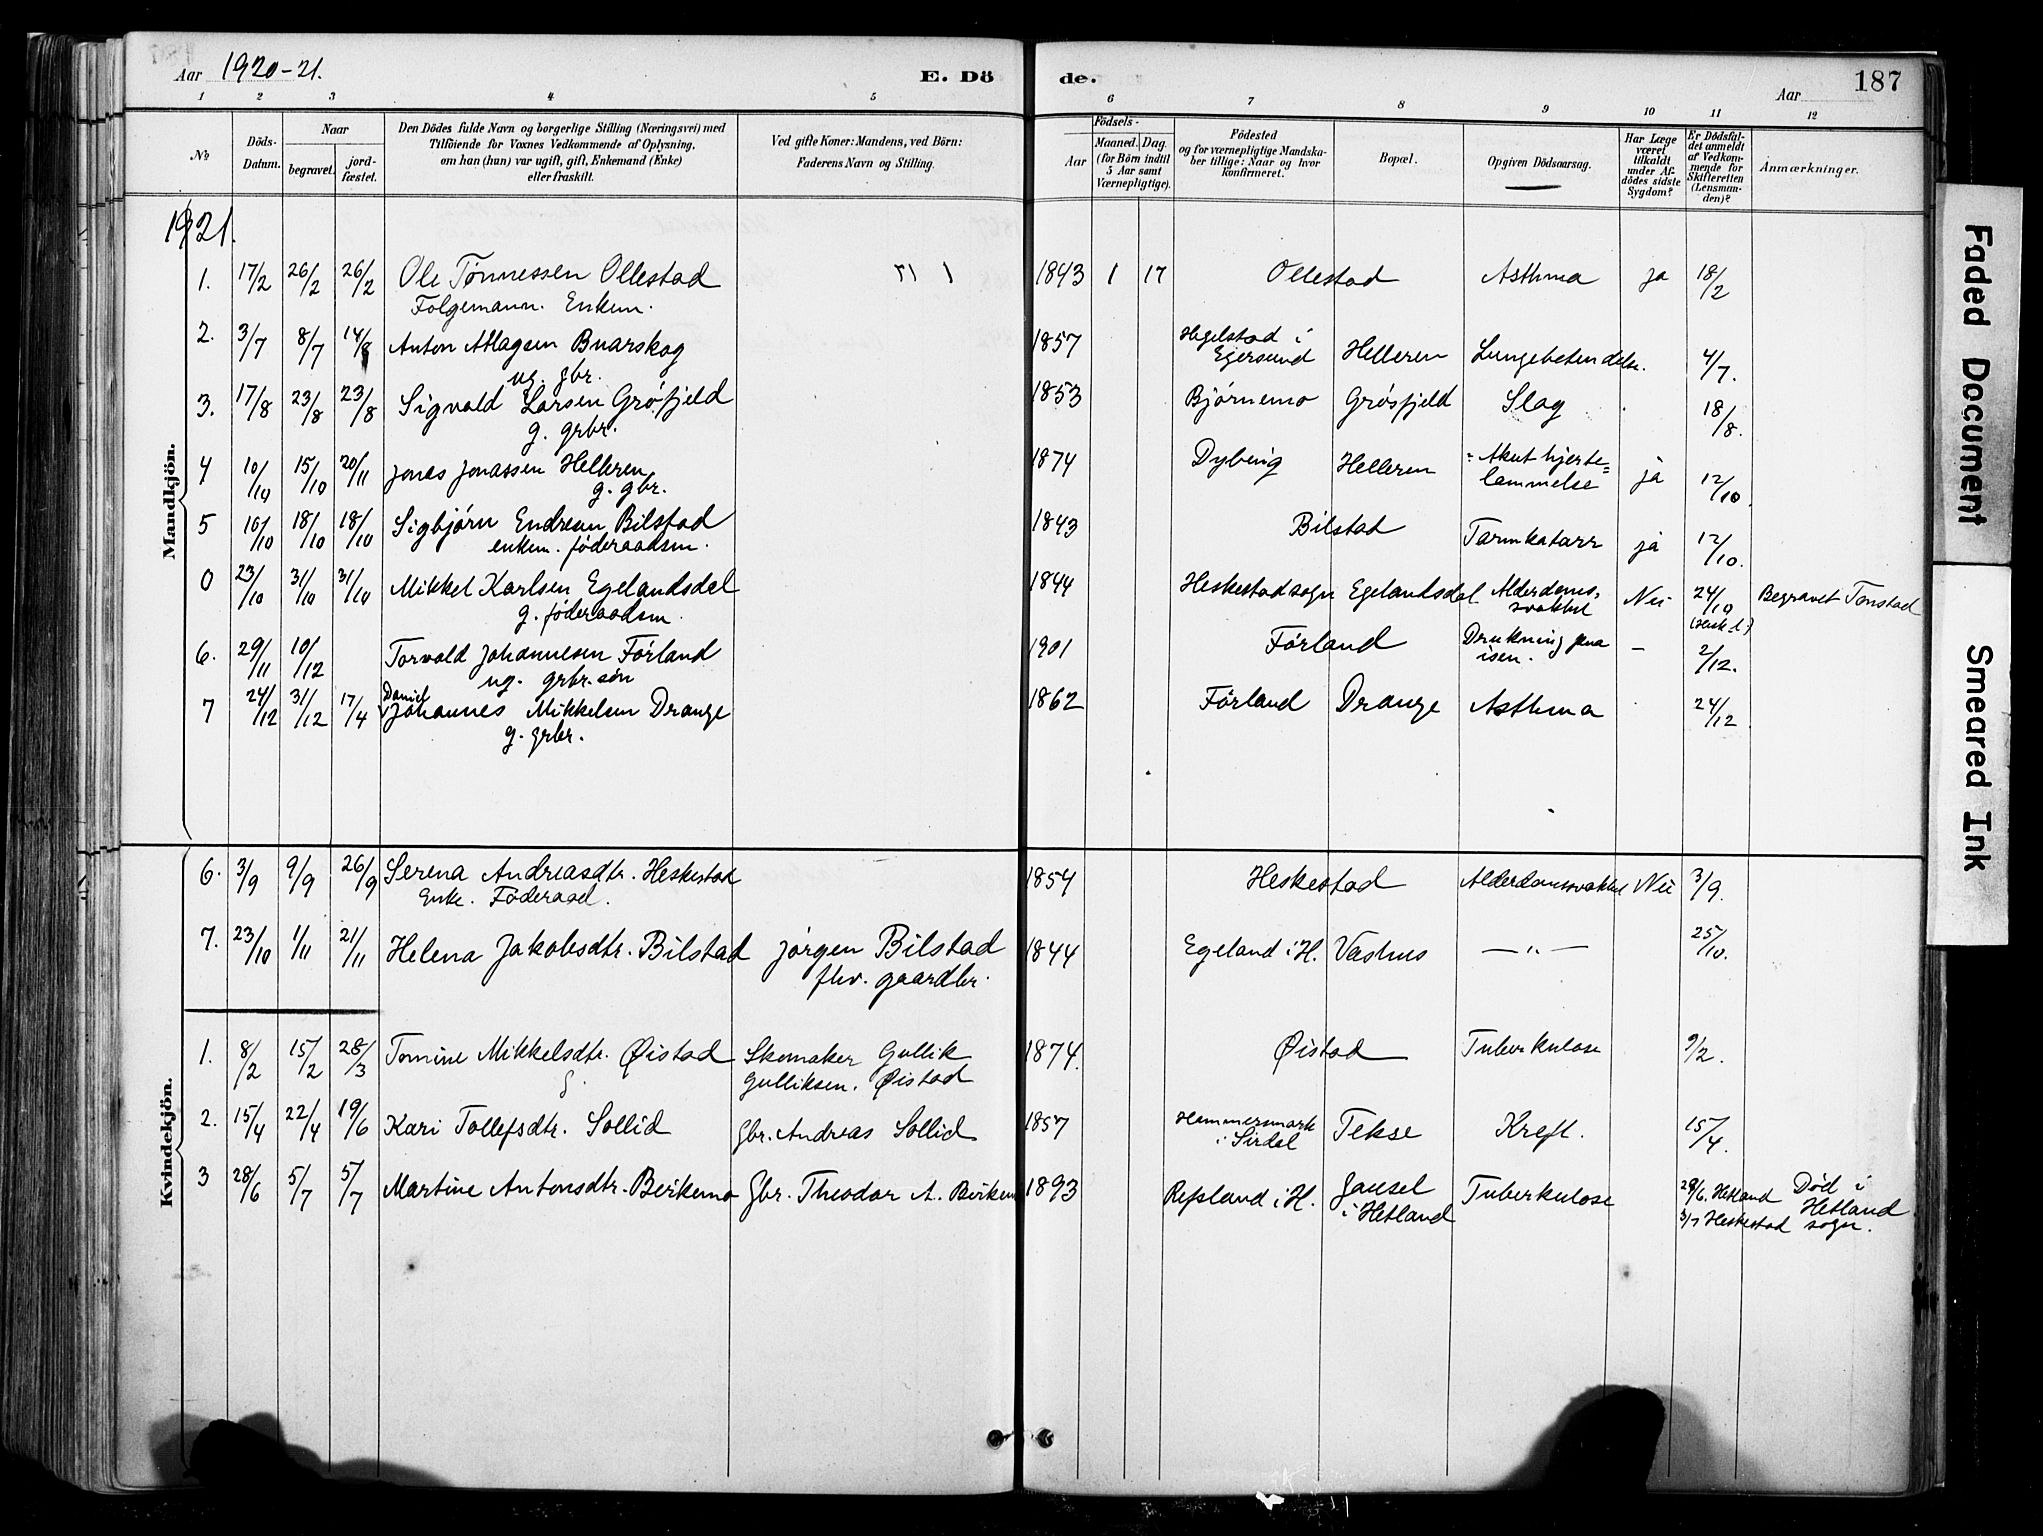 Aar 1920-21.
E. Dö
de.
Aar
187
1 2 3 4 5 6 7 8 9 10 11 12
№
Döds-Datum.
Naar
begravet.
jord-fæstet.
Den Dödes fulde Navn og borgerlige Stilling (Næringsvei) med
Tilföiende for Voxnes Vedkommende af Oplysning,
om han (hun) var ugift, gift, Enkemand (Enke)
eller fraskilt.
Ved gifte Koner: Mandens, ved Börn:
Faderens Navn og Stilling.
Födsels-
Aar
Maaned.
Dag.
(for Börn indtil
5 Aar samt
Værnepligtige).
Födested
og for værnepligtige Mandska-
ber tillige: Naar og hvor
konfirmeret.
Bopæl.
Opgiven Dödsaarsag.
Har Læge
været
tilkaldt
under Af-
dödes sidste
Sygdom?
Er Dödsfal-
det anmeldt
af Vedkom-
mende for
Skifteretten
(Lensman-
den)?
Anmærkninger.
Faded Document
Smeared Ink
Mandkjön.
1921.
1. 17/2 26/2 26/2 Ole Tønnessen Ollestad 1843 1 17 Ollestad Asthma ja 18/2
Folgemann. Enkem.
2. 3/7 8/7 14/8 Anton Atlagsen Buarskog 1857 Hegelstad i Egersund Helleren Lungebetendelse. 4/7.
ug. gbr.
3. 17/8 23/8 23/8 Sigvald Larsen Grøsfjeld 1853 Bjørnemo Grøsfjeld Slag 18/8.
g. grbr.
4 10/10 15/10 20/11 Jonas Jonassen Helleren 1874 Dybing Helleren Akut hjerte=
g. gbr. lammelse ja 12/10.
5 10/10 18/10 18/10 Sigbjørn Endresen Bilstad 1843 Bilstad Tarmkatarr ja 12/10.
enkem. føderaadsm.
0 23/10 31/10 31/10 Mikkel Karlsen Egelandsdal 1844 Heskestad sogn Egelandsdal Alderdoms- Nei 24/10 Begravet Tonstad
g. føderaadsm. svakhet
6. 29/11 10/12 Torvald Johannesen Førland 1901 Førland Drukning gjennem isen. — 2/12.
ug. grbr. søn
7 24/12 31/12 17/4 Daniel Johannes Mikkelsen Drange 1862 Førland Drange Asthma 24/12
g. grbr.
Kvindekjön.
6. 3/9 9/9 26/9 Serena Andreasdtr. Heskestad 1854 Heskestad Alderdomsvakhet Nei 3/9.
Enke.
7. 23/10 1/11 21/11 Helena Jakobsdtr. Bilstad Jørgen Bilstad 1844 Egeland i H. Vashus —〃— 25/10.
fhv. gaardbr.
1. 8/2 15/2 28/3 Tomine Mikkelsdtr. Øistad Skomaker Gullik 1874. Øistad Tuberkulose 9/2.
g Gulliksen. Øistad
2. 15/4 22/4 19/6 Kari Tollefsdtr. Sollid gbr. Andreas Sollid 1857 Hammersmark i Sirdal Tekse Kreft. 15/4.
3 28/6 5/7 5/7 Martine Antonsdtr. Berkemo Gbr. Theodor A. 1893 Refsland i H. Gausel i Hetland Tuberkulose 29/6. Hetland Død i
3/7 Heskestad Hetland sogn.